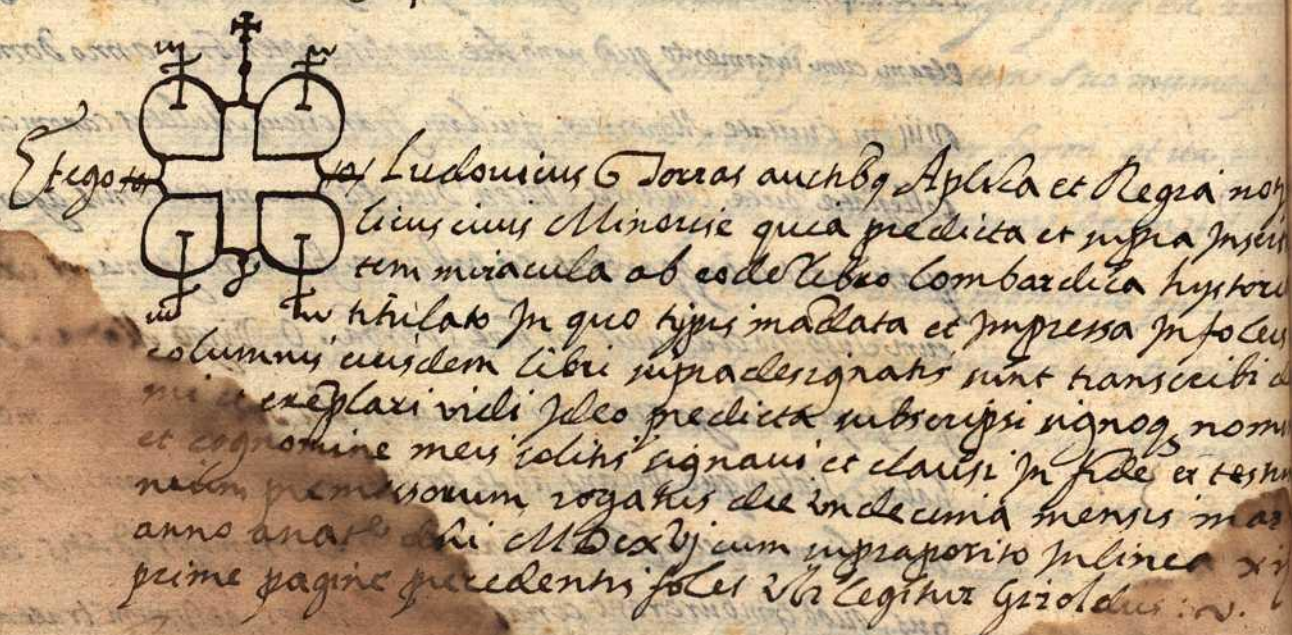 Et ego Ludouicus Torras aucthbq Aplica et Regia not
licus ciuis Minorise quia predicta et supra Inser
tem miracula ab eode libro lombardica hystori
titulato In quo typis madata et Impressa In foleis
columnis eiusdem libri supradesignatis sunt transcribi
exeplari vidi Ideo predicta subscripsi signoq nomi
et cognomine meis solitis signaui et clausi In fide et testi
premissorum rogatus die vndecima mensis mar
anno anat dni MDCxvj cum supraposito In linea xij
prime pagine precedentis folei vbi legitur Giroldus